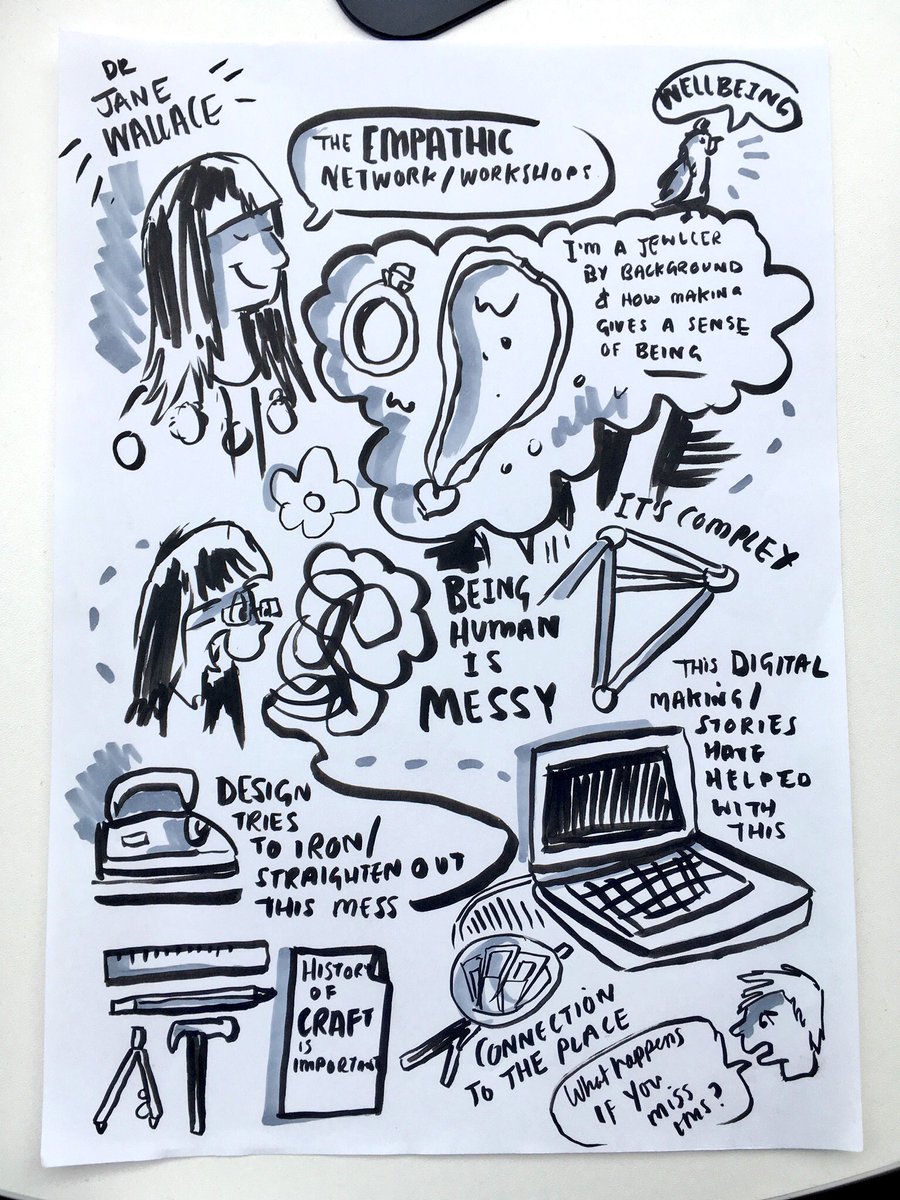 DR
JANE
WALLACE
THE EMPATHIC
NETWORK/WORKSHOPS
WELLBEING
I'M A JEWLLER
BY BACKGROUND
& HOW MAKING
GIVES A SENSE
OF BEING
IT'S COMPLEX
BEING
HUMAN
IS
MESSY
THIS DIGITAL
MAKING/
STORIES
HAVE
HELPED
WITH
THIS
DESIGN
TRIES
TO IRON/
STRAIGHTEN OUT
THIS MESS
HISTORY
OF
CRAFT
IS
IMPORTANT
CONNECTION
TO THE PLACE
What happens
IF YOU
miss